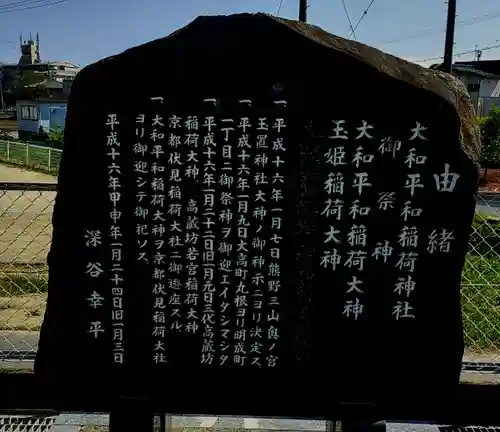 由緒
大和平和稲荷神社
御祭神
大和平和稲荷大神
玉姫稲荷大神
一、平成十六年一月七日熊野三山奥ノ宮
玉置神社大神ノ御神示ニヨリ決定ス、
一、平成十六年一月九日大高町丸根ヨリ明成町
一丁目ニ御祭神ヲ御迎エイタシマシタ
一、平成十六年一月二十二日旧一月元日三吹高蔵坊
稲荷大神、高蔵坊若宮稲荷大神
京都伏見稲荷大社ニ御遷座スル
一、大和平和稲荷大神ヲ京都伏見稲荷大社
ヨリ御迎シテ御祀ソス、
平成十六年甲申年一月二十四日旧一月三日
深谷幸平